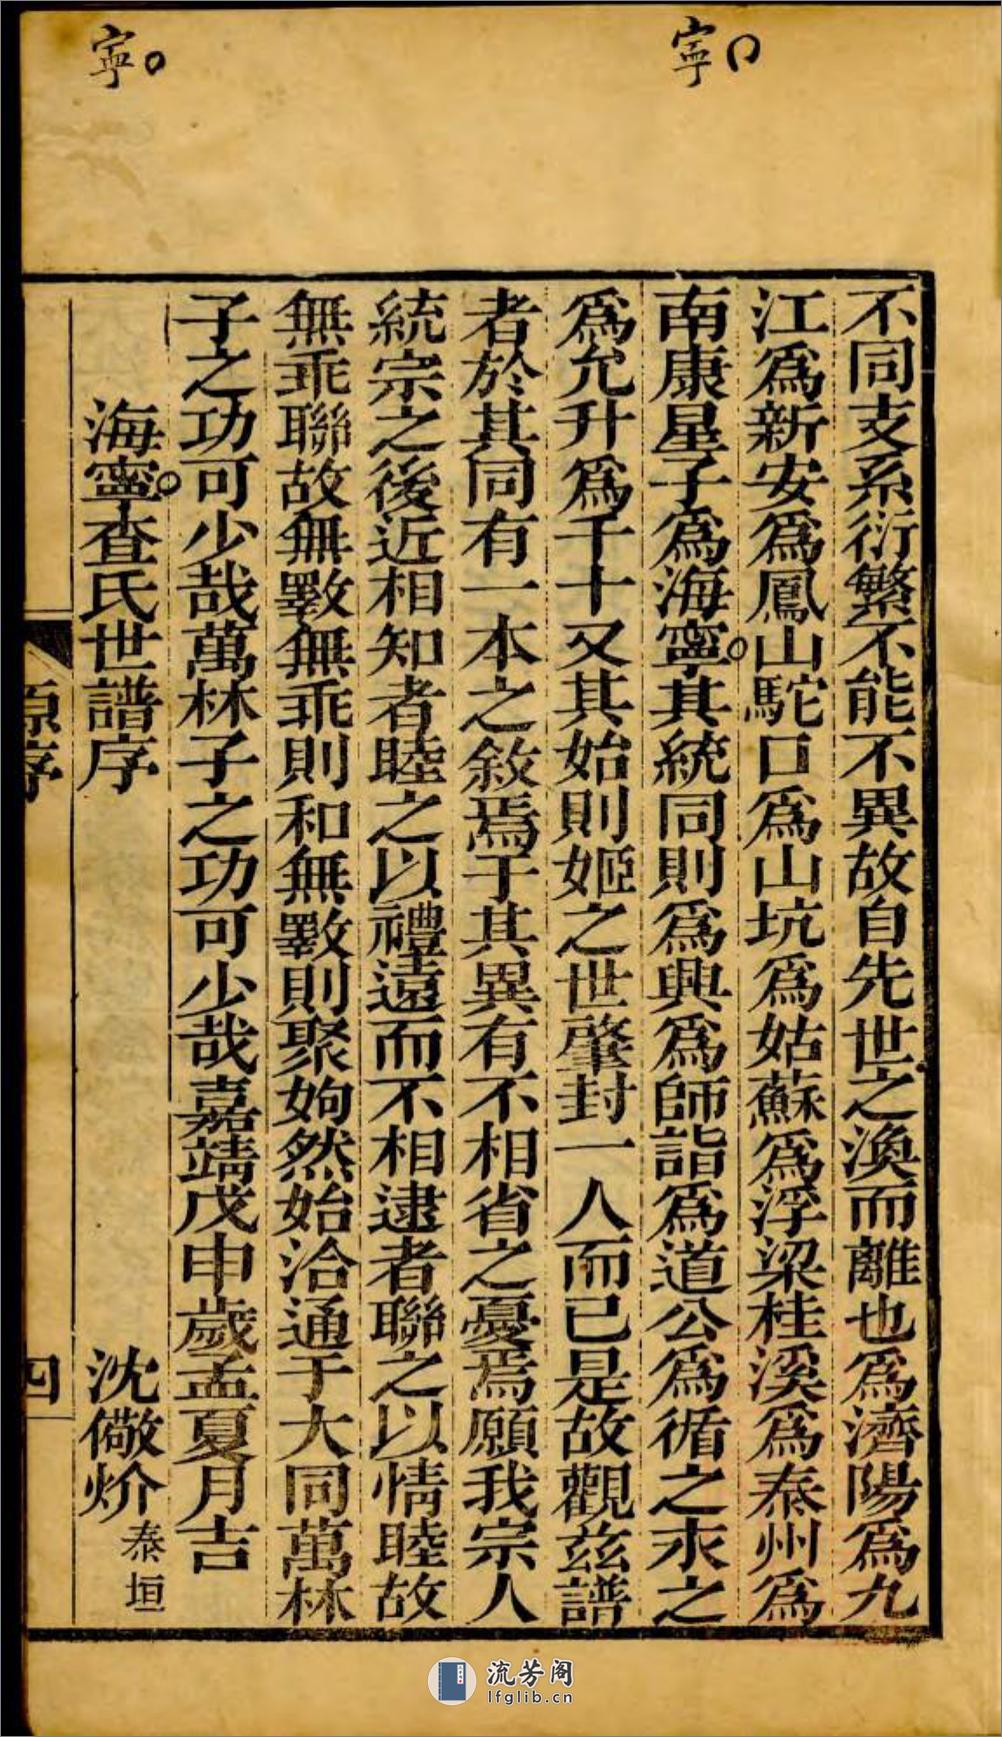 寧
寧
不同支系衍繁不能不異故自先世之渙而離也爲濟陽爲九
江爲新安爲鳳山駝口爲山坑爲姑蘇爲浮梁桂溪爲泰州爲
南康星子爲海寧其統同則爲興爲師詣爲道公爲循之永之
爲允升爲千十又其始則姬之世肇封一人而已是故觀茲譜
者於其同有一本之敘焉于其異有不相省之憂焉願我宗人
統宗之後近相知者睦之以禮遠而不相逮者聯之以情睦故
無乖聯故無斁無乖則和無斁則聚姁然始洽通于大同萬林
子之功可少哉萬林子之功可少哉嘉靖戊申歲孟夏月吉
海寧查氏世譜序 沈儆炌 泰垣
原序 四
流芳阁
lfglib.cn